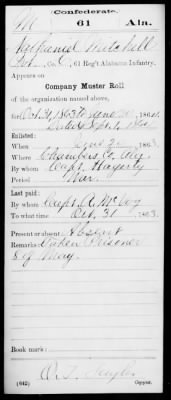 Confederate.
M 61 Ala.
Nathaniel Mitchell
Pvt., Co. C, 61 Reg't Alabama Infantry.
Appears on
Company Muster Roll
of the organization named above,
for Oct 31, 1863 to June 30, 186
dated Sept. 1, 1864
Enlisted:
When 186 .
Where Chambers Co, Ala
By whom Capt. Hagerty
Period War
Last paid:
By whom Capt. A. McCoy
To what time Oct. 31, 1863.
Present or absent Absent
Remarks: Taken Prisoner
8 of May.
Book mark:
(642) Copyist.